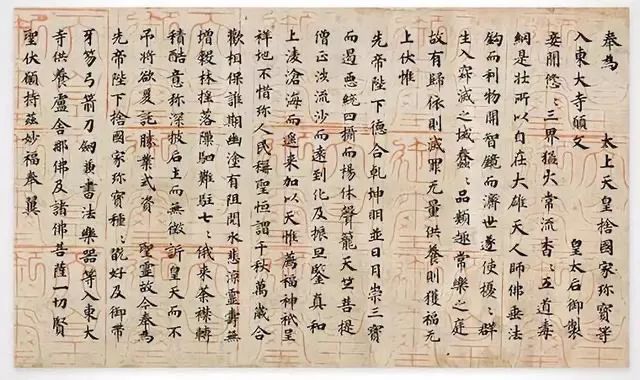 奉為　太上天皇捨國家珍寶等
入東大寺願文　皇太后御製
妾聞悠々三界猛火常流杳々五道毒
網是壯所以自在大雄天人師佛垂法
鈎而利物開智鏡而濟世遂使擾々群
生入寂滅之域蠢々品類趣常樂之庭
故有歸依則滅罪无量供養則獲福无
上伏惟
先帝陛下德合乾坤明並日月崇三寶
而遏惡統四攝而揚休聲籠天竺菩提
僧正涉流沙而遠到化及振旦鑒真和
上凌滄海而遙來加以天惟薦福神祇呈
祥地不惜珎人民稱聖恒謂千秋萬歲合
歡相保誰期幽塗有阻閱水悲涼靈壽無
增穀林搖落隙駟難駐七々俄來荼襟轉
積酷意弥深披后土而無徵訴皇天而不
弔將欲爰託勝業式資　聖靈故今奉為
先帝陛下捨國家珎寶種々翫好及御帶
牙笏弓箭刀劔兼書法樂器等入東大
寺供養盧舍那佛及諸佛菩薩一切賢
聖伏願持茲妙福奉翼